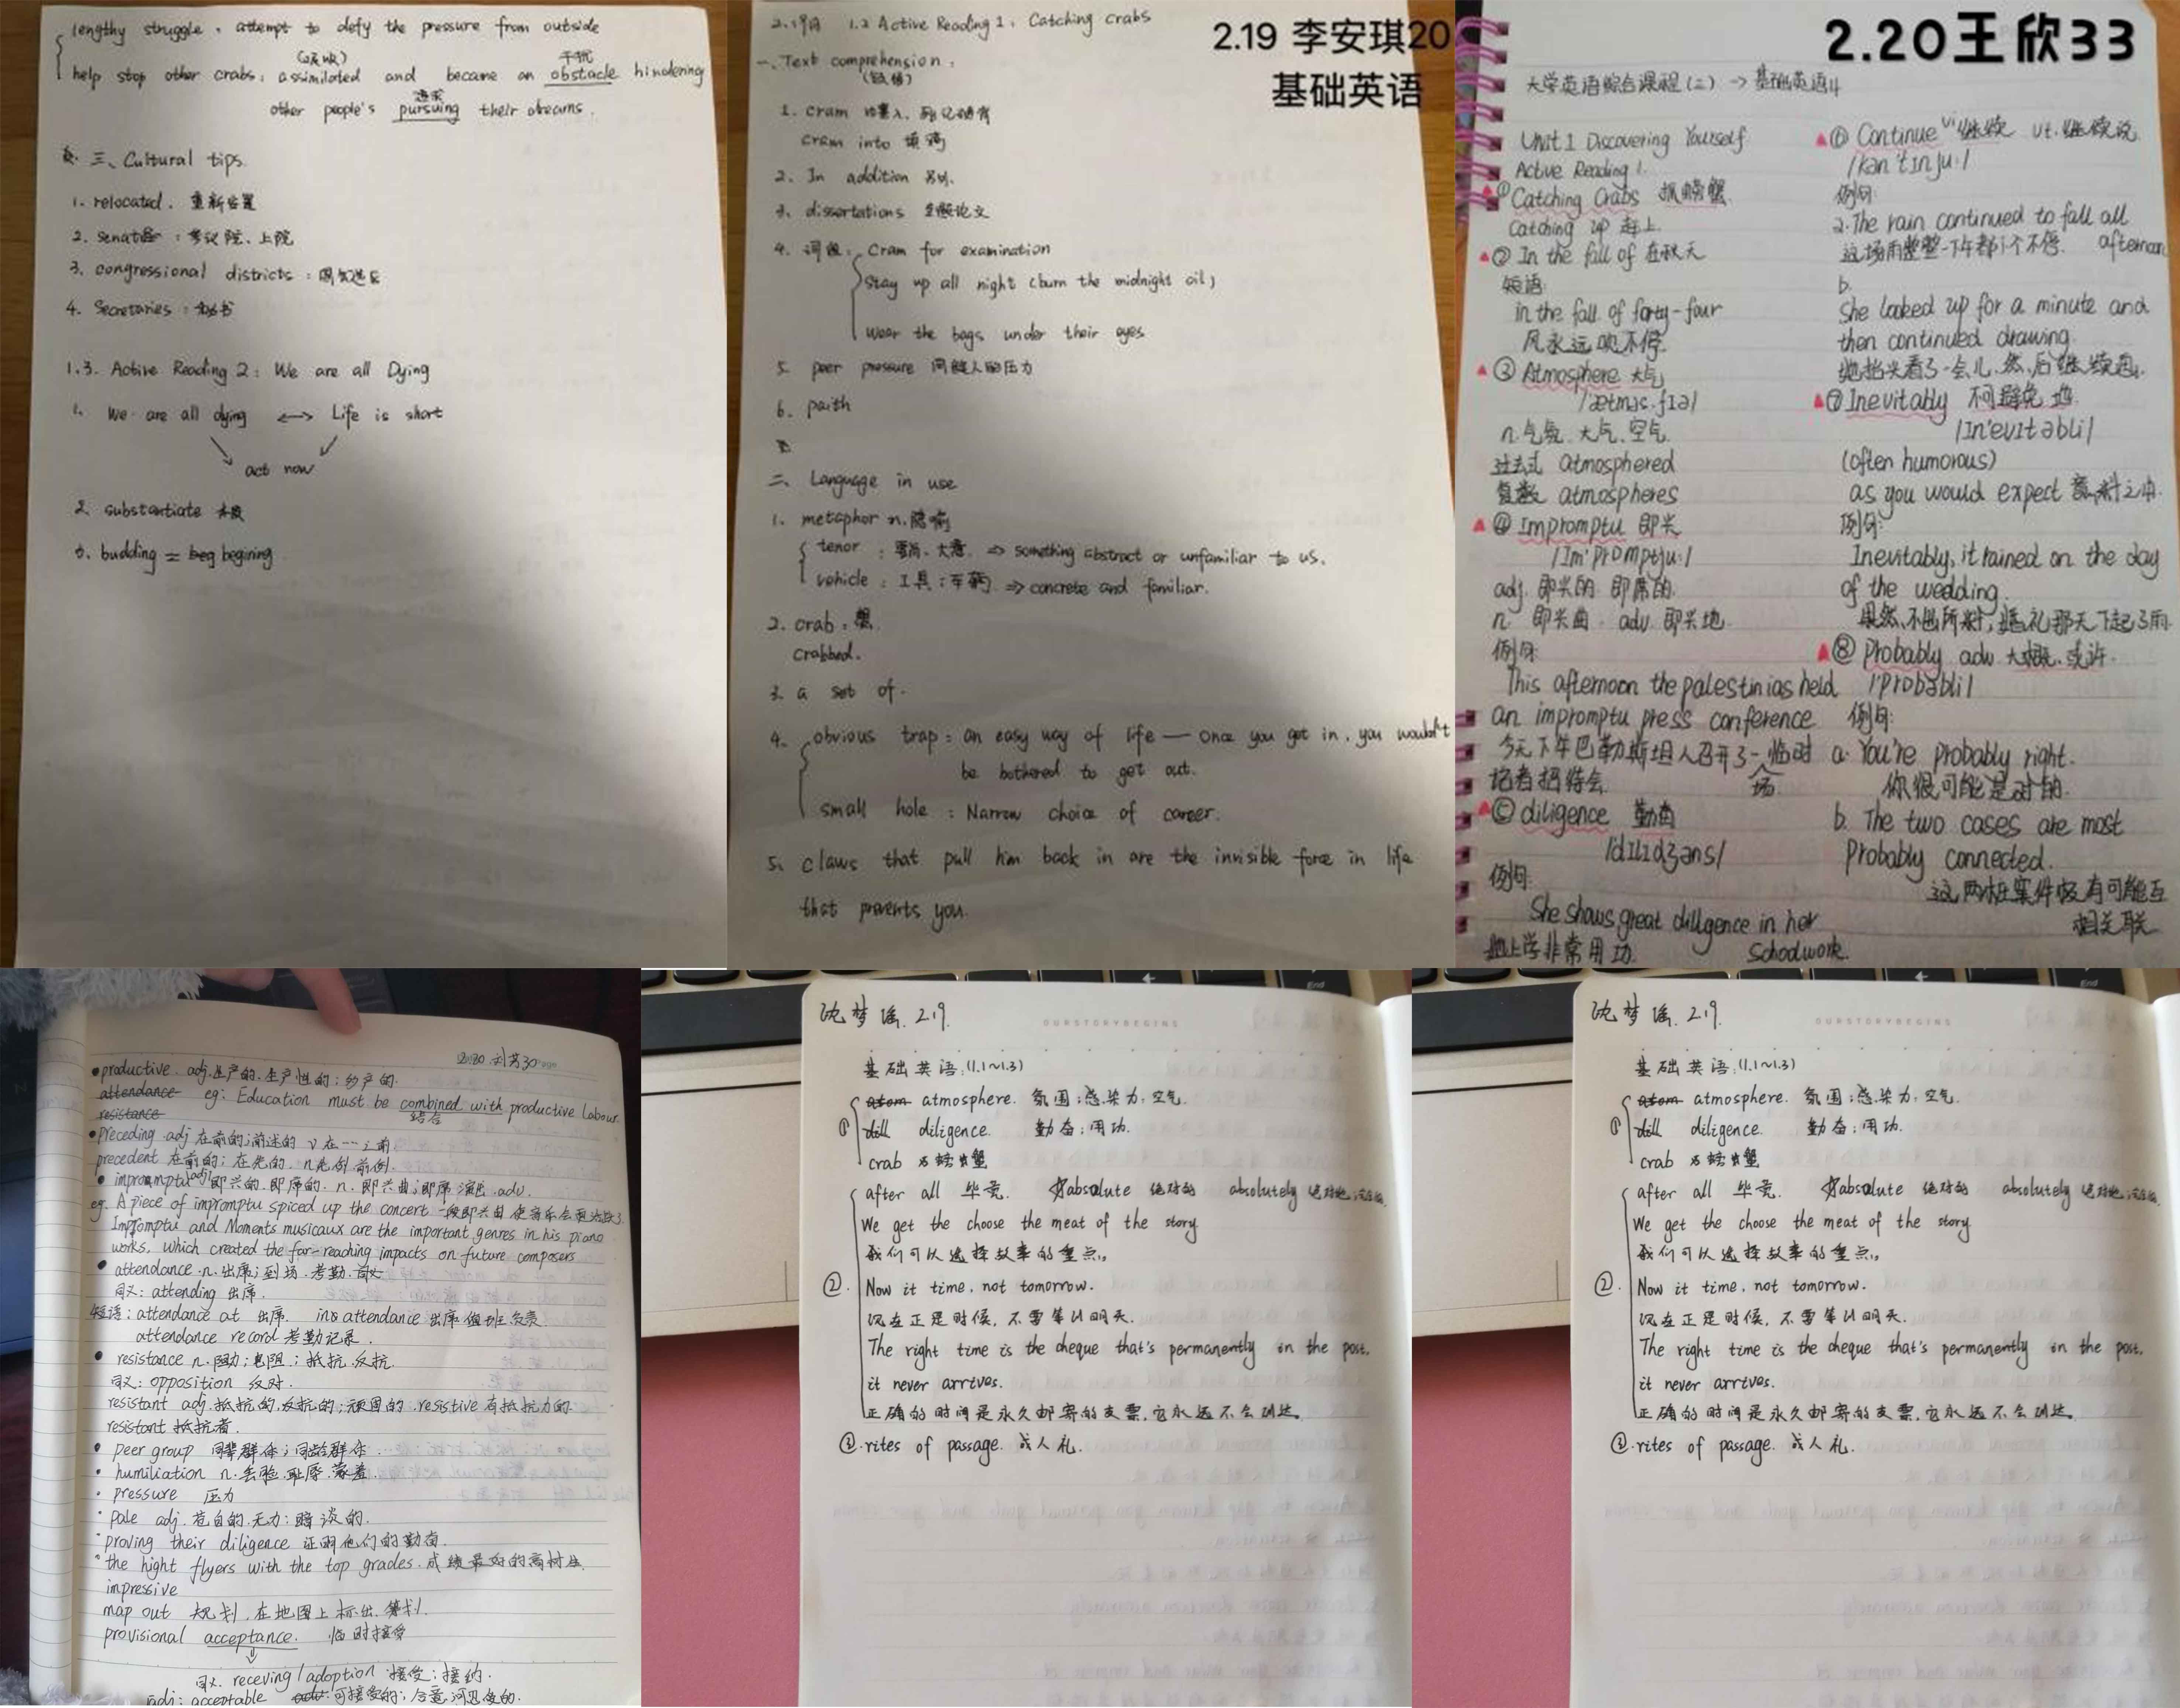 lengthy struggle, attempt to defy the pressure from outside
help stop other crabs: assimilated and became an obstacle hindering
干扰
追求
other people's pursuing their dreams.
三、Cultural tips.
1. relocated. 重新安置
2. Senat : 参议院、上院
3. congressional districts : 国会选区
4. Secretaries : 秘书
1.3. Active Reading 2: We are all Dying
1. We are all dying ⟷ Life is short
act now
2. substantiate
3. budding = beg begining
2.19 李安琪20
基础英语
2.19日 1.2 Active Reading 1: Catching crabs
一、Text comprehension :
1. cram 塞入、死记硬背
cram into 填鸭
2. In addition 另外.
3. dissertations 论文
4. 词组: Cram for examination
Stay up all night (burn the midnight oil)
Wear the bags under their eyes
5. peer pressure 同龄人的压力
6. paith
二、Language in use
1. metaphor n.隐喻
tenor : 要旨、大意 ⇒ something abstract or unfamiliar to us.
vehicle : 工具;车辆 ⇒ concrete and familiar.
2. crab : 蟹.
crabbed.
3. a set of.
4. obvious trap: an easy way of life — Once you get in, you wouldn't
be bothered to get out.
small hole : Narrow choice of career.
5. claws that pull him back in are the invisible force in life
that prevents you.
2.20王欣33
大学英语综合课程(二) → 基础英语4
Unit 1 Discovering Yourself
Active Reading 1.
① Catching Crabs 抓螃蟹
Catching up 赶上
② In the fall of 在秋天
短语:
in the fall of forty-four
风永远吹不停
③ Atmosphere 大气
/ætməs.fɪə/
n.气氛.大气.空气
过去式 atmosphered
复数 atmospheres
④ Impromptu 即兴
/Im'prɒmptju:/
adj. 即兴的 即席的.
n. 即兴曲. adv. 即兴地
例句:
This afternoon the palestinias held
an impromptu press conference
今天下午巴勒斯坦人召开了一场临时
记者招待会
⑤ diligence 勤奋
/dɪlɪdʒəns/
例句:
She shows great dillgence in her
schoolwork.
她上学非常用功.
⑥ Continue vi继续 vt.继续说
/kən'tɪnju:/
例句:
a. The rain continued to fall all
afternoon
这场雨整整一下午都下个不停.
b.
She looked up for a minute and
then continued drawing.
她抬头看了一会儿.然后继续画.
⑦ Inevitably 不可避免地.
/In'evɪtəbli/
(often humorous)
as you would expect 意料之中.
例句:
Inevitably, it rained on the day
of the wedding.
果然不出所料,婚礼那天下起了雨.
⑧ Probably adv. 大概.或许.
/'prɒbəbli/
例句:
a. You're probably right.
你很可能是对的.
b. The two cases are most
Probably connected.
这两桩案件极有可能互
相关联
2.20 刘芳30
•productive. adj.生产的.生产性的;多产的.
attendance eg: Education must be combined with productive labour.
结合
resistance
•preceding .adj 在前的;前述的 v 在--之前
precedent 在前的;在先的. n先例.前例.
• impromptu adj 即兴的.即席的. n. 即兴曲;即席演出.adv.
eg. A piece of impromptu spiced up the concert.一段即兴曲使音乐会
Impromptu and Moments musicaux are the important genres in his piano
works, which created the far-reaching impacts on future composers
• attendance .n.出席;到场.考勤.
同义: attending 出席.
短语: attendance at 出席. in attendance 出席 值班.负责
attendance record 考勤记录.
• resistance n.阻力;电阻;抵抗.反抗.
同义: opposition 反对.
resistant adj.抵抗的.反抗的;顽固的.resistive 有抵抗力的.
resistant 抵抗者.
• peer group 同辈群体;同龄群体.
• humiliation n.丢脸.耻辱.蒙羞.
• pressure 压力
• pale adj. 苍白的.无力;暗淡的.
• proving their diligence 证明他们的勤奋.
• the hight flyers with the top grades.成绩最好的高材生
impressive
map out 规划.在地图上标出.筹划.
provisional acceptance. 临时接受
同义. receving / adoption 接受;接纳.
adj: acceptable 可接受的;合意.可忍受的.
沈梦瑶. 2.19.
OURSTORYBEGINS
基础英语:(1.1~1.3)
① atom atmosphere. 氛围;感染力;空气.
dill diligence. 勤奋;用功.
crab 为螃蟹
after all 毕竟. absolute 绝对的 absolutely 绝对地;
We get the choose the meat of the story
我们可以选择故事的重点.
② Now it time, not tomorrow.
现在正是时候,不需等以明天.
The right time is the cheque that's permanently in the post.
it never arrives.
正确的时间是永久邮寄的支票,它永远不会到达.
③ rites of passage. 成人礼.
沈梦瑶. 2.19.
OURSTORYBEGINS
基础英语:(1.1~1.3)
① atom atmosphere. 氛围;感染力;空气.
dill diligence. 勤奋;用功.
crab 为螃蟹
after all 毕竟. absolute 绝对的 absolutely 绝对地;
We get the choose the meat of the story
我们可以选择故事的重点.
② Now it time, not tomorrow.
现在正是时候,不需等以明天.
The right time is the cheque that's permanently in the post.
it never arrives.
正确的时间是永久邮寄的支票,它永远不会到达.
③ rites of passage. 成人礼.